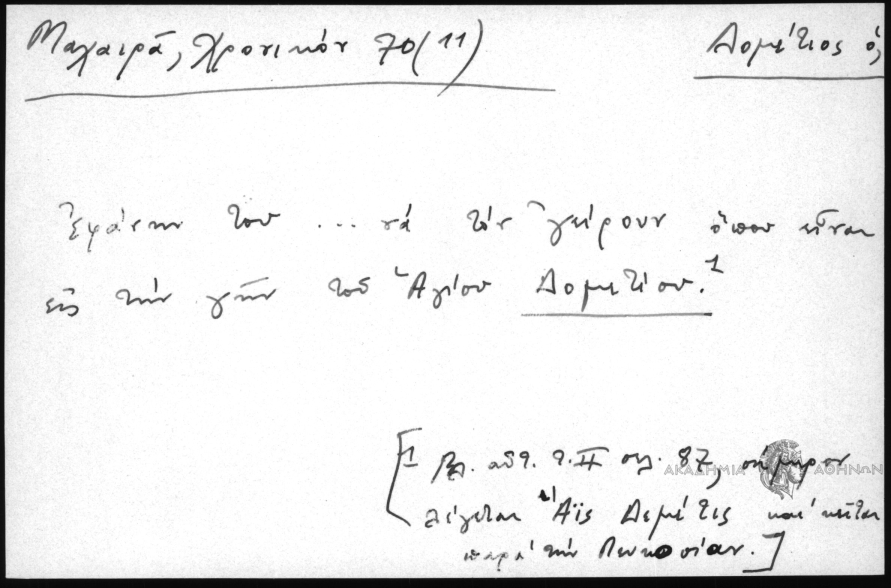 Μαχαιρά, Χρονικόν 70 (11)
Δομέτιος ὁ,
Ἐφάνην του ... νά τόν γείρουν ὅπου εἶναι
εἰς τήν γῆν τοῦ Ἁγίου Δομετίου.¹
[1 Βλ. αὐτ. τ. ΙΙ σελ. 87, σήμερον
λέγεται Ἅϊς Δεμέτις καί κεῖται
παρά τήν Λευκοσίαν.]
ΑΚΑΔΗΜΙΑ ΑΘΗΝΩΝ